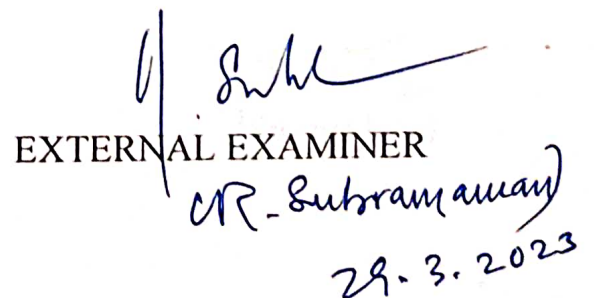 EXTERNAL EXAMINER
(R. Subramanian)
29.3.2023